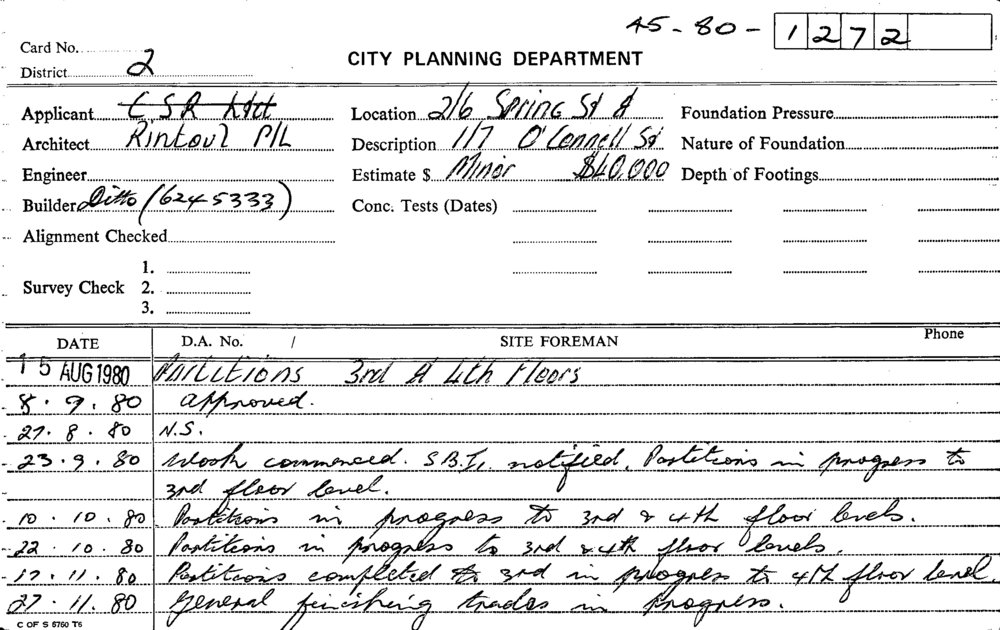 45-80- 1272
Card No.
District 2
CITY PLANNING DEPARTMENT
Applicant C S R Ltd Location 2/6 Spring St & Foundation Pressure
Architect Rintoul P/L Description 1/7 O'Connell St Nature of Foundation
Engineer Estimate $ Minor $40,000 Depth of Footings
Builder Ditto (624 5333) Conc. Tests (Dates)
Alignment Checked
1.
Survey Check 2.
3.
DATE D.A. No. / SITE FOREMAN Phone
15 AUG 1980 Partitions 3rd & 4th Floors
8.9.80 Approved.
27.8.80 N.S.
23.9.80 Work commenced. S.B.I. notified. Partitions in progress to
3rd floor level.
10.10.80 Partitions in progress to 3rd & 4th floor levels.
22.10.80 Partitions in progress to 3rd & 4th floor levels.
17.11.80 Partitions completed to 3rd in progress to 4th floor level.
27.11.80 General finishing trades in progress.
C OF S 5760 T6